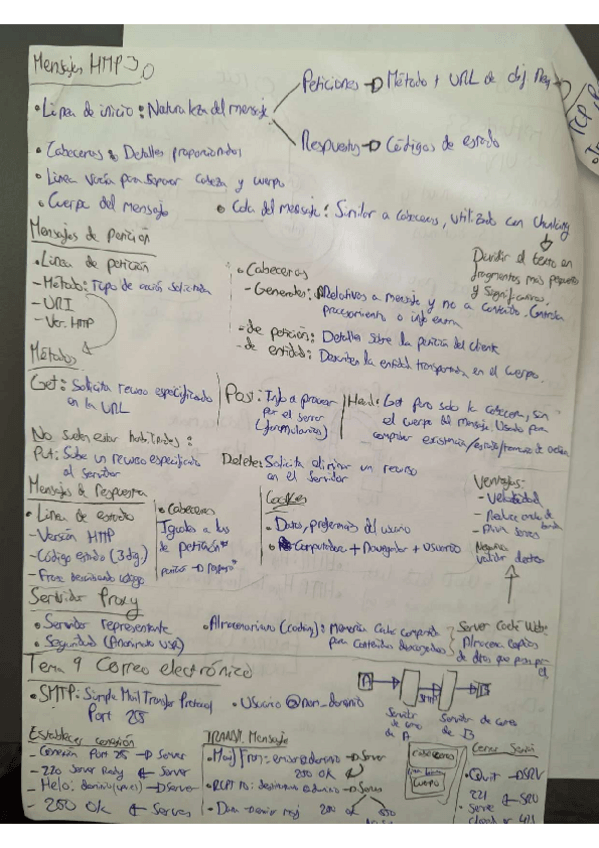 Mensajes HTTP
Peticiones → Método + URL de obj Req
TCP
• Línea de inicio: Naturaleza del mensaje
Respuestas → Códigos de estado
• Cabeceras: Detalles proporcionados
• Línea vacía para separar cabeza y cuerpo
• Cuerpo del mensaje
• Cola del mensaje: Similar a cabeceras, utilizado con Chunking
Dividir el texto en
fragmentos más pequeños
y significativos.
Mensajes de petición
• Línea de petición
- Método: Tipo de acción solicitada
- URI
- Ver. HTTP
• Cabeceras
- Generales: Relativos a mensaje y no a contenido. Controlan
procesamiento o info extra
- de petición: Detalles sobre la petición del cliente
- de entidad: Describen la entidad transportada en el cuerpo.
Métodos
Get: Solicita recurso especificado
en la URL
Post: Info a procesar
por el server
(formularios)
Head: Get pero solo la cabecera, sin
el cuerpo del mensaje. Usado para
comprobar existencia/estado/
No suelen estar habilitados:
Put: Sube un recurso especificado
al servidor
Delete: Solicita eliminar un recurso
en el servidor
Mensajes de respuesta
• Línea de estado
- Versión HTTP
- Código estado (3 dig.)
- Frase describiendo código
• Cabeceras
Iguales a las
de petición
Cookies
• Datos, preferencias del usuario
• Computadora + Navegador + Usuario
Ventajas:
- Velocidad
- Reduce ancho de
banda
Negativo:
validar datos
Servidor Proxy
• Servidor representante
• Seguridad (Anonimato USR)
• Almacenamiento (caching): Memoria Caché compartida
para contenidos descargados
Server Caché Web:
Almacena copias
de datos que pasan por
él
Tema 9 Correo electrónico
• SMTP: Simple Mail Transfer Protocol
Port 25
• Usuario@nom_dominio
A
SMTP
B
Servidor
de correo
de A
Servidor de correo
de B
Establecer conexión
- Conexión Port 25 → Server
- 220 Server Ready ← Server
- Helo: dominio → Server
- 250 Ok ← Server
Transf. Mensaje
• Mail From: → Server
250 OK
• RCPT to: → Server
250 OK 550
Cabeceras
Cuerpo
Cerrar
• Quit → SRV
221 ← SRV